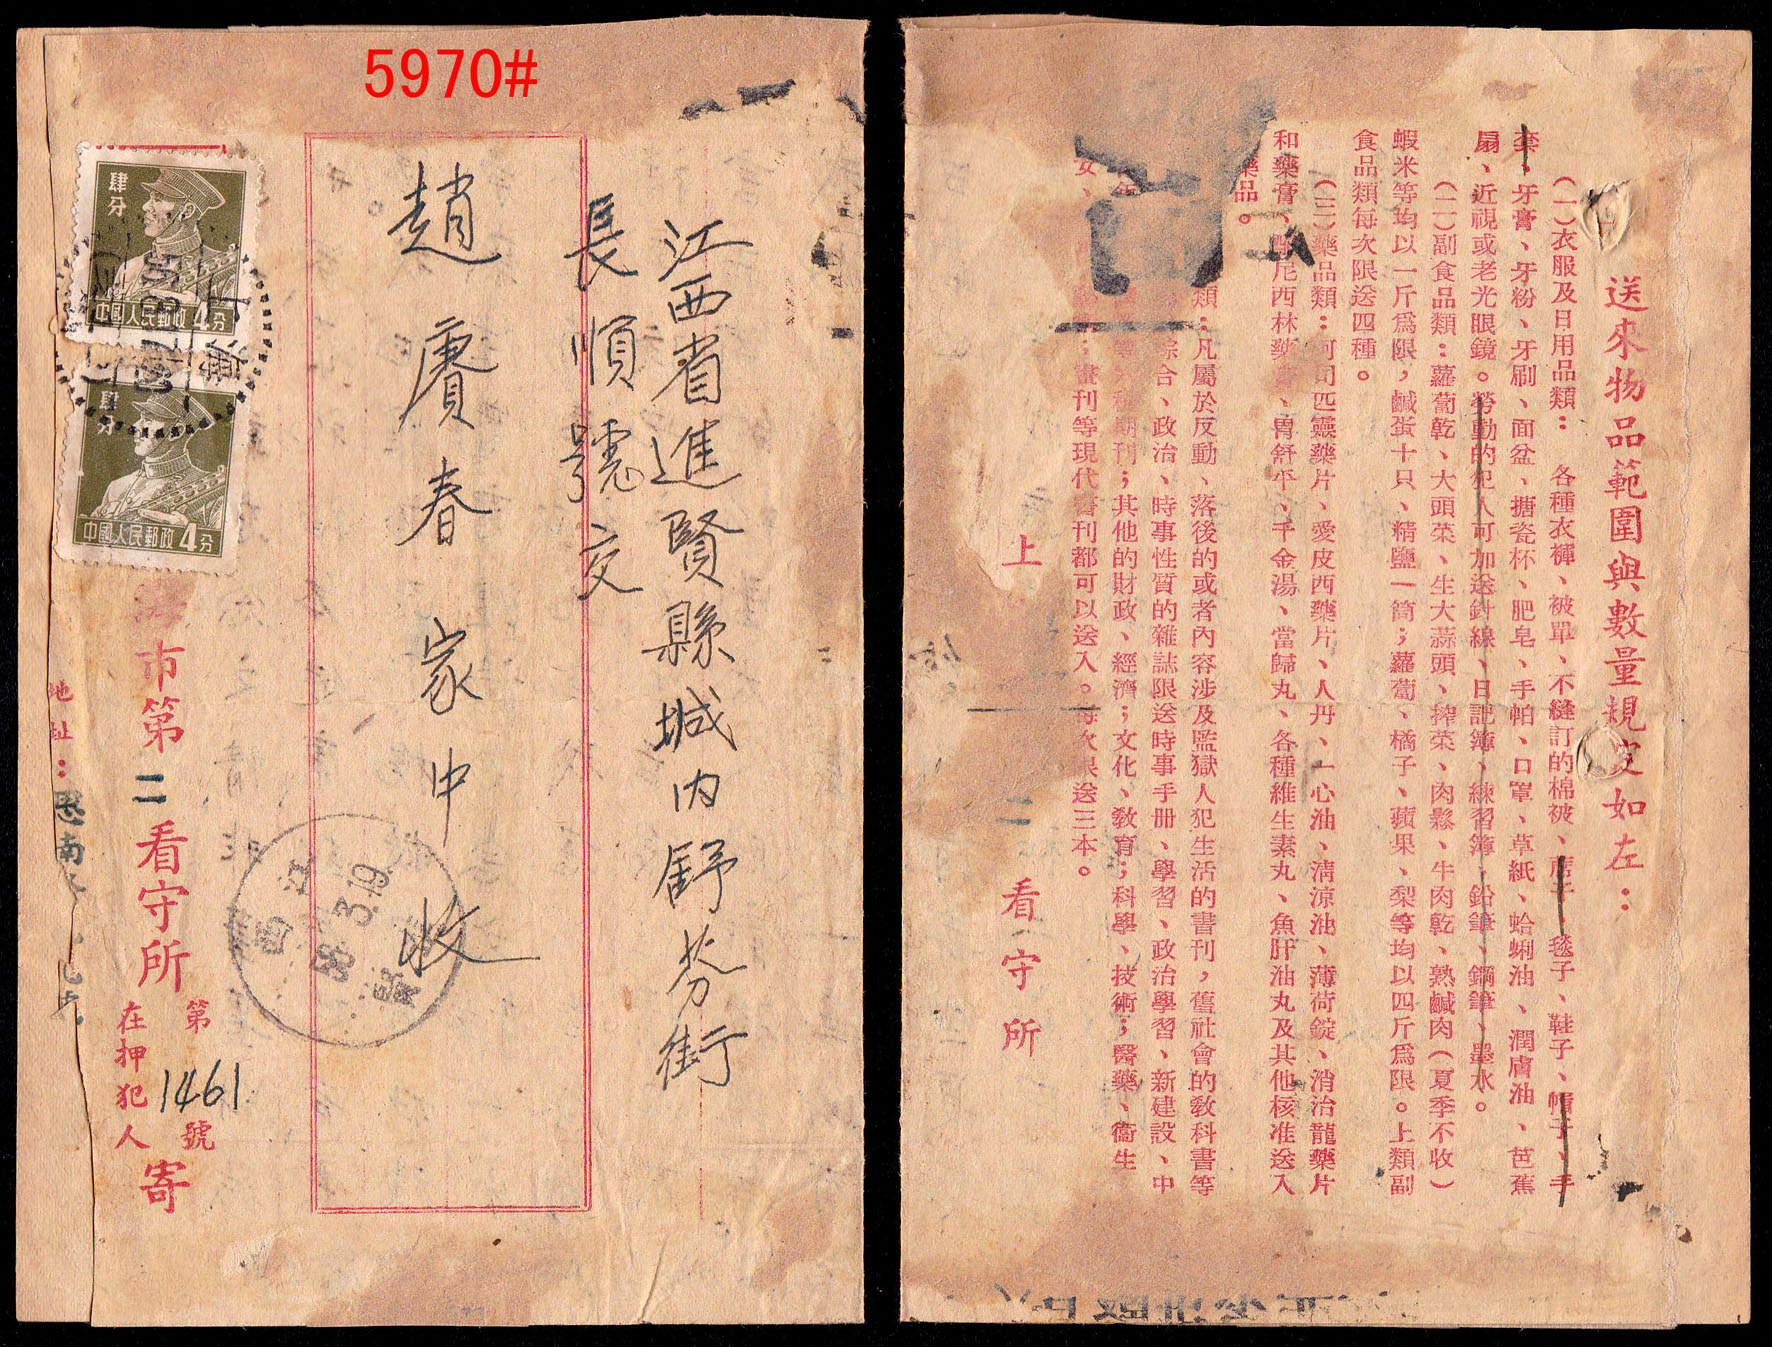 5970#
江西省進賢縣城内舒芬街
長順號交
趙賡春家中收
肆分
中國人民郵政4分
肆分
中國人民郵政4分
江西
58.3.19.
進賢
市第二看守所
第1461號
在押犯人
寄
地址：思南
送來物品範圍與數量規定如左：
（一）衣服及日用品類：各種衣褲、被單、不縫訂的棉被、蓆子、毯子、鞋子、帽子、手
套、牙膏、牙粉、牙刷、面盆、搪瓷杯、肥皂、手帕、口罩、草紙、蛤蜊油、潤膚油、芭蕉
扇、近視或老光眼鏡。勞動的犯人可加送針線、日記簿、練習簿、鉛筆、鋼筆、墨水。
（二）副食品類：蘿蔔乾、大頭菜、生大蒜頭、搾菜、肉鬆、牛肉乾、熟鹹肉（夏季不收）
蝦米等均以一斤爲限，鹹蛋十只、精鹽一筒；蘿蔔、橘子、蘋果、梨等均以四斤爲限。上類副
食品類每次限送四種。
（三）藥品類：阿司匹靈藥片、愛皮西藥片、人丹、一心油、清涼油、薄荷錠、消治龍藥片
和藥膏、配尼西林藥膏、胃舒平、千金湯、當歸丸、各種維生素丸、魚肝油丸及其他核准送入
藥品。
類：凡屬於反動、落後的或者內容涉及監獄人犯生活的書刊，舊社會的教科書等
綜合、政治、時事性質的雜誌限送時事手册、學習、政治學習、新建設、中
期刊；其他的財政、經濟；文化、教育；科學、技術；醫藥、衞生
；畫刊等現代書刊都可以送入。每次限送三本。
上
二看守所